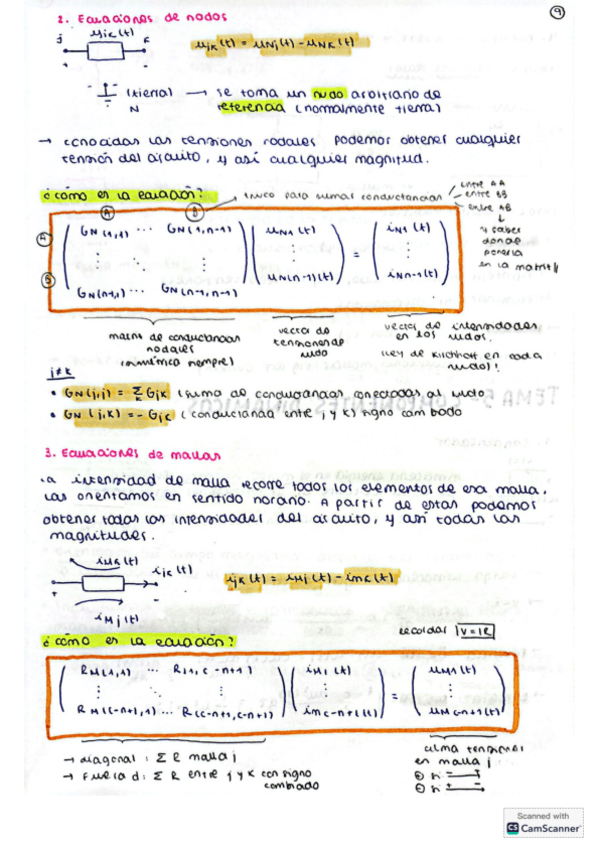 9
2. Ecuaciones de nodos
ujk(t)
j k
+ -
ujk(t) = uNj(t) - uNk(t)
(tierra) → se toma un nudo arbitrario de
N referencia (normalmente tierra)
→ conocidas las tensiones nodales podemos obtener cualquier
tensión del circuito, y así cualquier magnitud.
¿cómo es la ecuación?
truco para sumar conductancias
entre AA
entre BB
entre AB
↓
y saber
donde
ponerla
en la matriz
A B
A
B
GN(1,1) ... GN(1,n-1) uN1(t) = iN1(t)
GN(n-1,1) ... GN(n-1,n-1) uN(n-1)(t) iNn-1(t)
matriz de conductancias
nodales
(simétrica siempre)
vector de
tensiones de
nudo
vector de intensidades
en los nudos.
(Ley de Kirchhoff en cada
nudo)!
j≠k
• GN(j,j) = Σ Gjk (suma de conductancias conectadas al nudo)
• GN(j,k) = - Gjk (conductancia entre j y k) signo cambiado
TEMA 5: COMPONENTES DINÁMICOS
3. Ecuaciones de mallas
La intensidad de malla recorre todos los elementos de esa malla.
Las orientamos en sentido horario. A partir de estas podemos
obtener todas las intensidades del circuito, y así todas las
magnitudes.
iMk(t)
ijk(t)
+ -
iMj(t)
ijk(t) = iMj(t) - iMk(t)
¿cómo es la ecuación?
Recordar V=IR
RM(1,1) ... R(1,c-n+1) iM1(t) = uM1(t)
RM(c-n+1,1) ... R(c-n+1,c-n+1) iMc-n+1(t) uMc-n+1(t)
→ diagonal: Σ R malla j
→ Fuera d: Σ R entre j y k con signo
cambiado
suma tensiones
en malla j
⊕ si - +
⊖ si + -
Scanned with
CS CamScanner